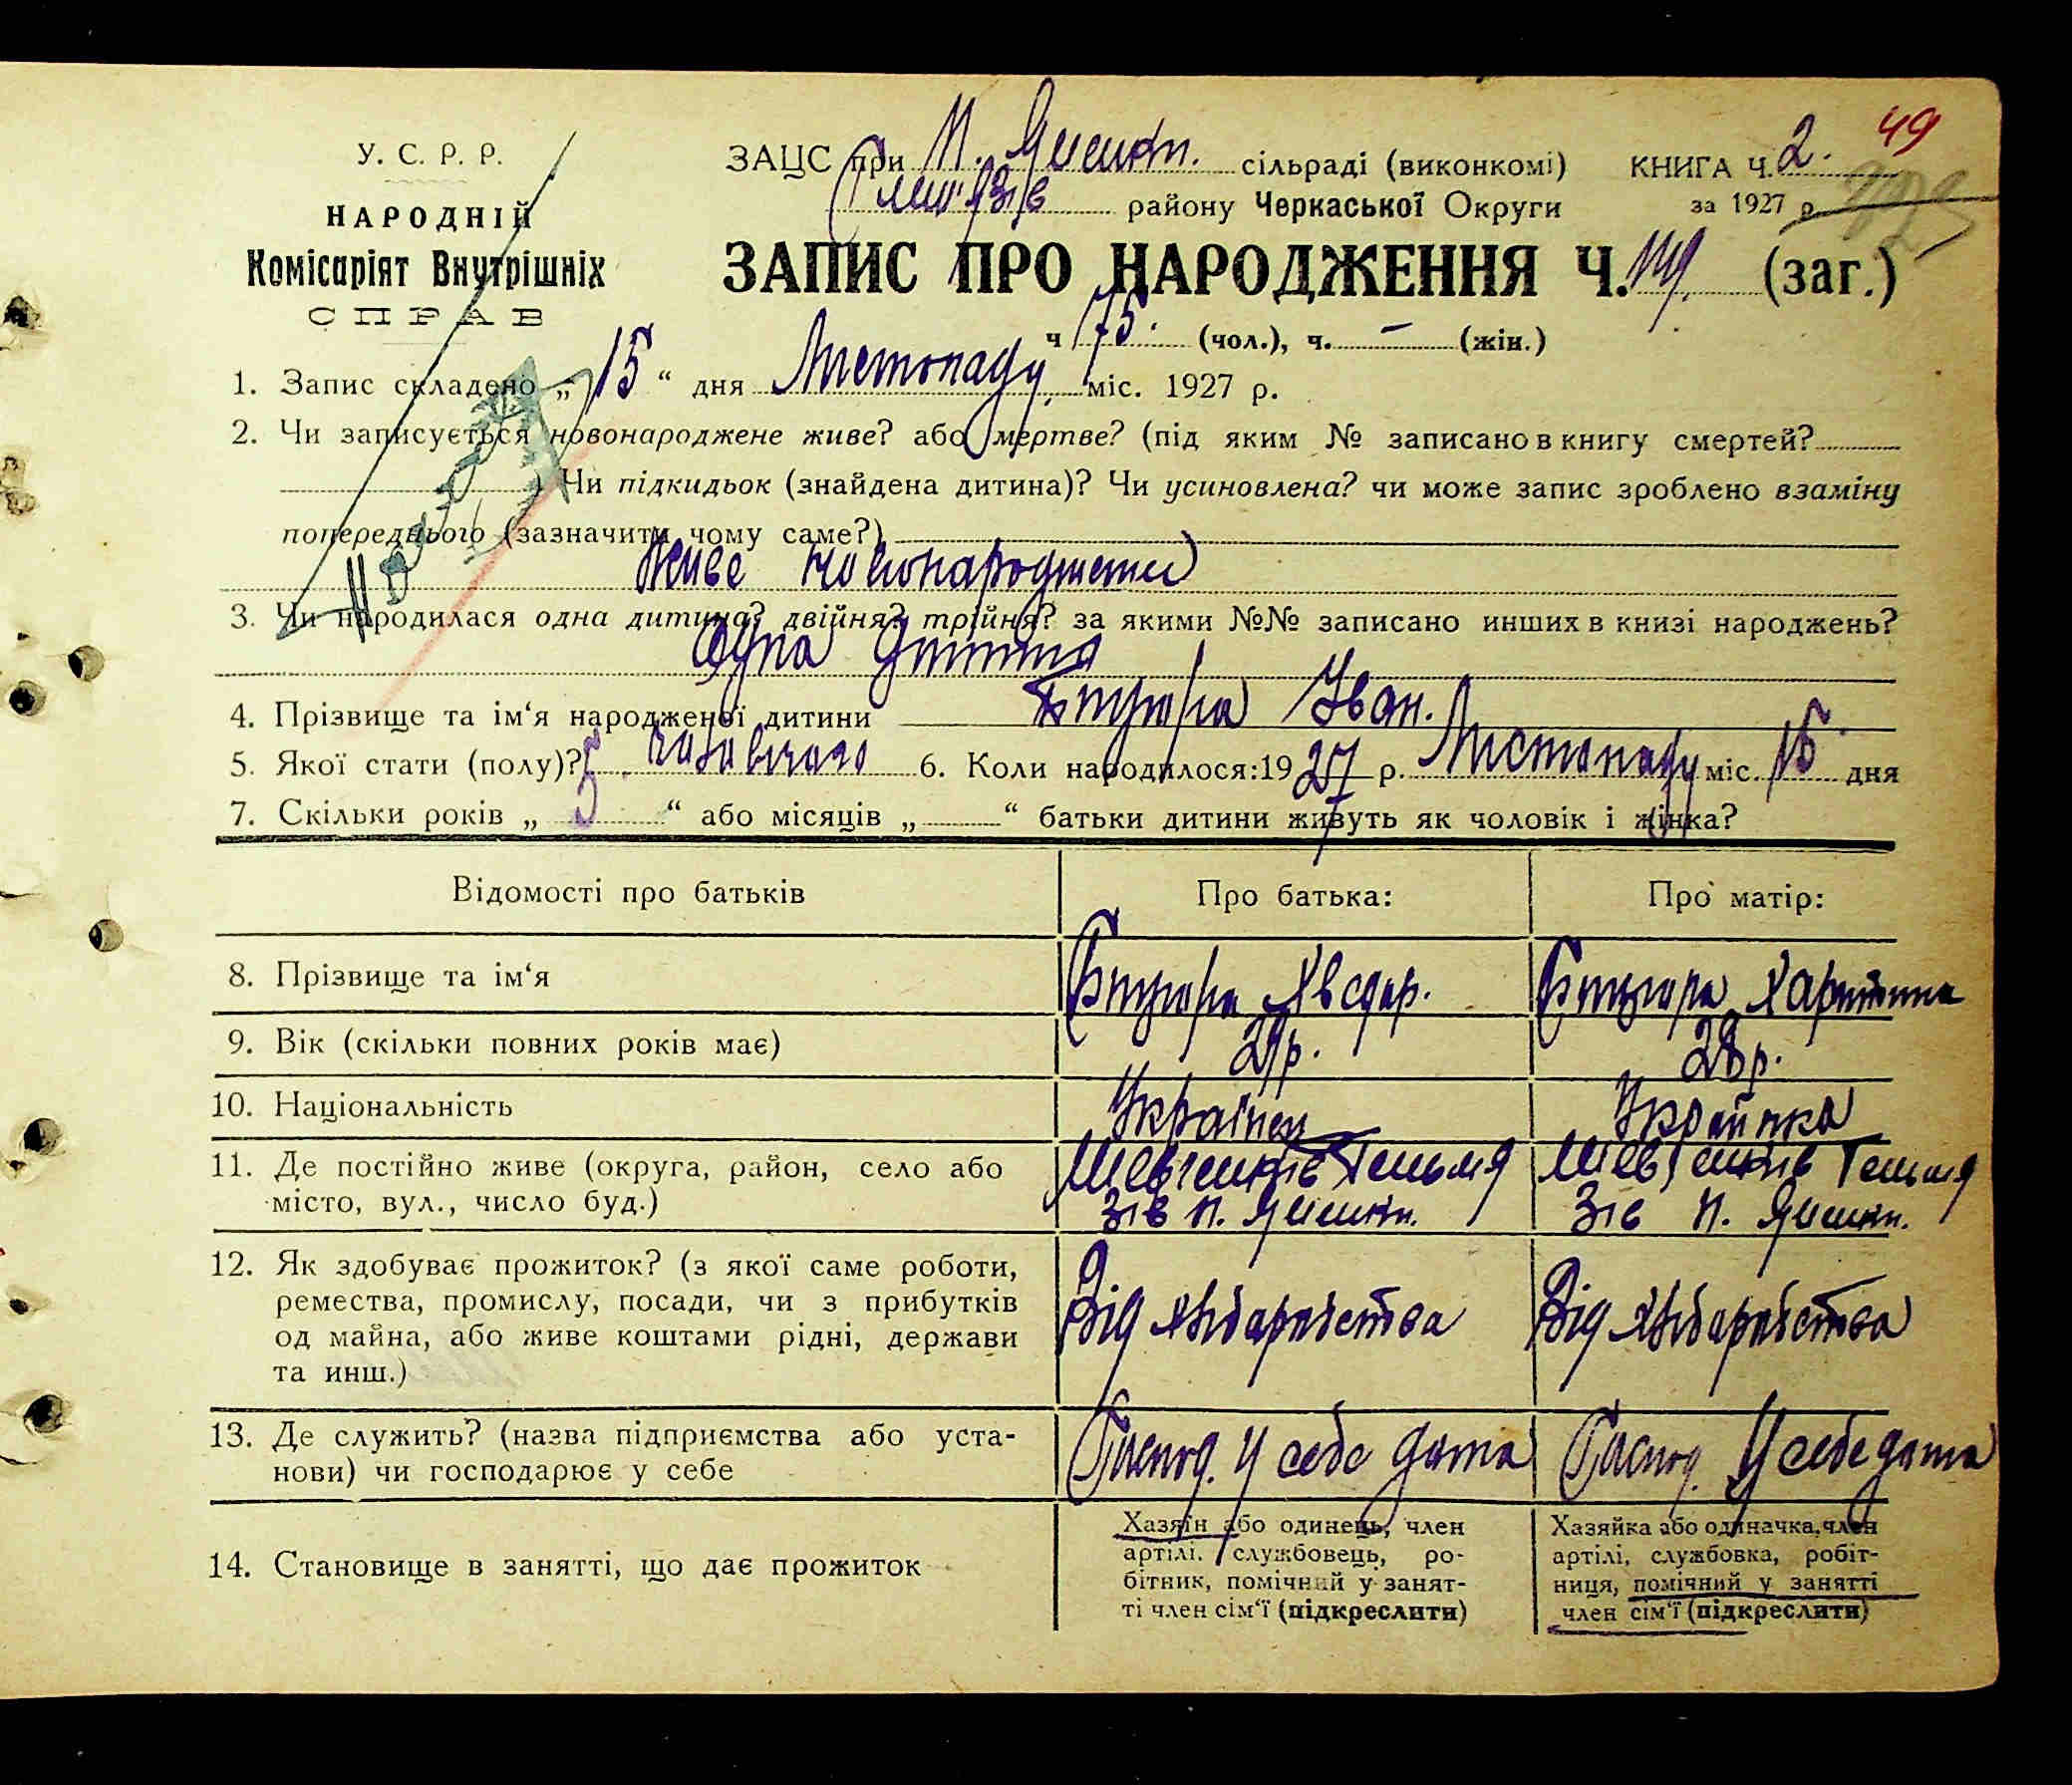 49
У. С. Р. Р.
НАРОДНІЙ
Комісаріят Внутрішніх
СПРАВ
ЗАЦС при сільраді (виконкомі) КНИГА Ч. 2.
району Черкаської Округи за 1927 р.
ЗАПИС ПРО НАРОДЖЕННЯ Ч. 149. (заг.)
ч 75. (чол.), ч. – (жін.)
1. Запис складено „ 15 “ дня Листопаду міс. 1927 р.
2. Чи записується новонароджене живе? або мертве? (під яким № записано в книгу смертей?
) Чи підкидьок (знайдена дитина)? Чи усиновлена? чи може запис зроблено взаміну
попереднього (зазначити чому саме?)
Живе новонароджене
3. Чи народилася одна дитина? двійня? трійня? за якими №№ записано инших в книзі народжень?
Одна дитина
4. Прізвище та ім‘я народженої дитини Іван.
5. Якої стати (полу)? чоловічого 6. Коли народилося: 1927 р. Листопаду міс. 15 дня
7. Скільки років „ 5 “ або місяців „ “ батьки дитини живуть як чоловік і жінка?
Відомості про батьків Про батька: Про матір:
8. Прізвище та ім‘я
9. Вік (скільки повних років має) 29 р. 28 р.
10. Національність Українец Українка
11. Де постійно живе (округа, район, село або Шевченків Гельмя Шевченків Гельмя
місто, вул., число буд.) зів зів
12. Як здобуває прожиток? (з якої саме роботи, Від хліборобства Від хліборобства
ремества, промислу, посади, чи з прибутків
од майна, або живе коштами рідні, держави
та инш.)
13. Де служить? (назва підприємства або уста- Господ. у себе дома Господ. у себе дома
нови) чи господарює у себе
14. Становище в занятті, що дає прожиток
Хазяїн або одинець, член
артілі, службовець, ро-
бітник, помічний у занят-
ті член сім‘ї (підкреслити)
Хазяйка або одиначка, член
артілі, службовка, робіт-
ниця, помічний у занятті
член сім‘ї (підкреслити)